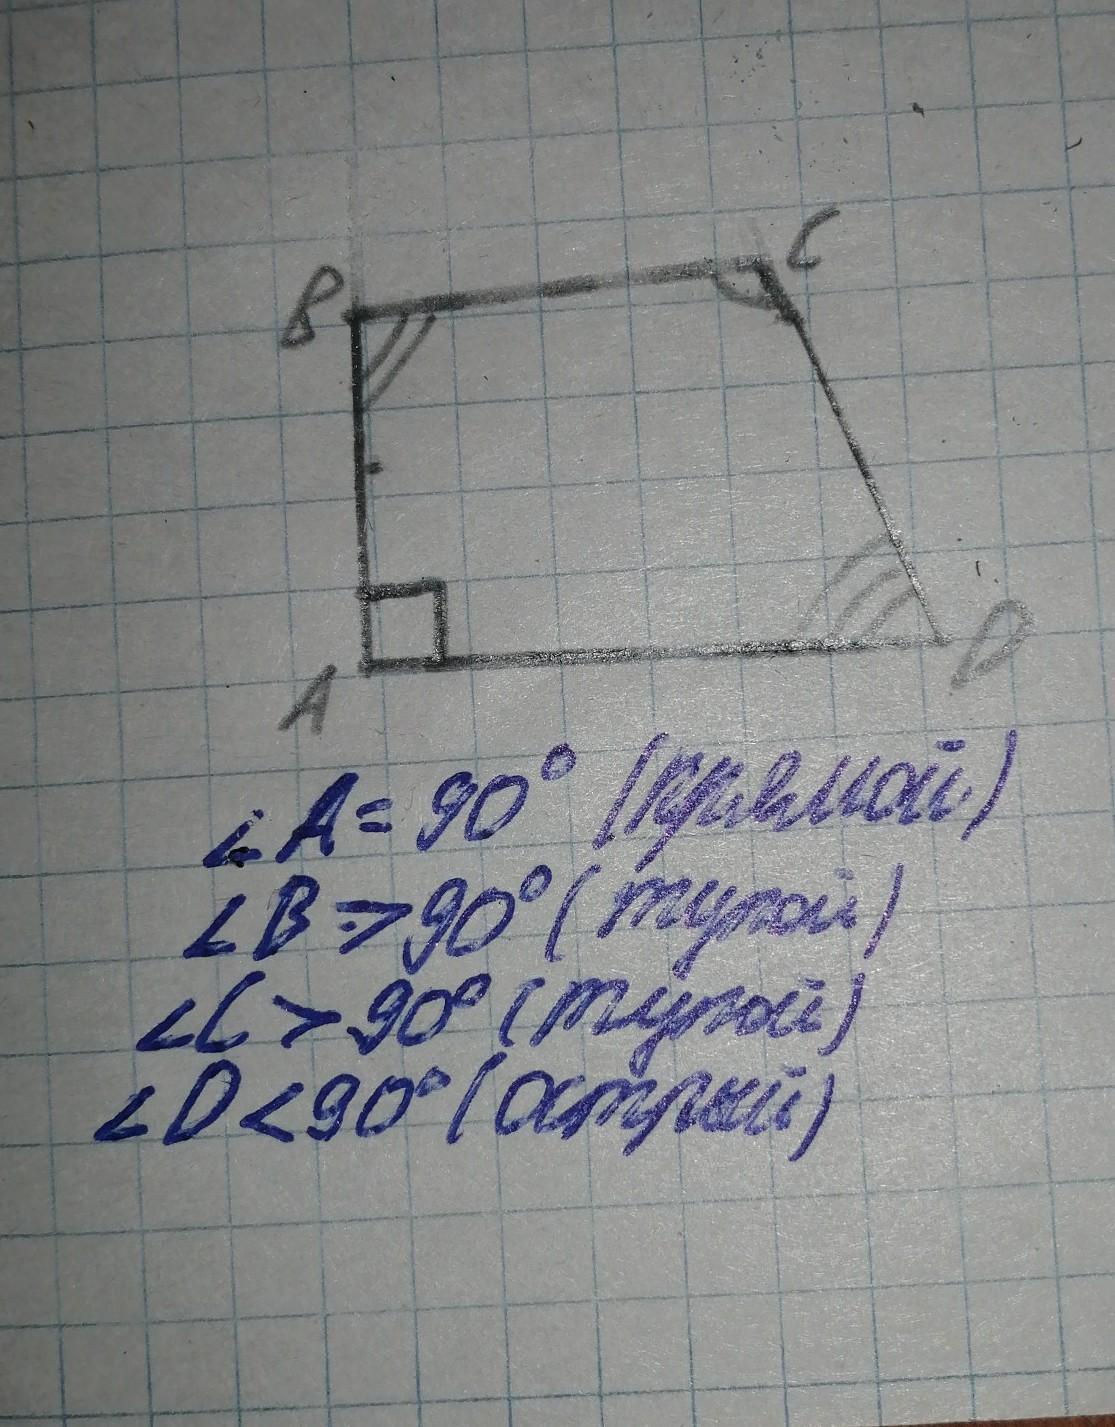 B C
A D
∠A = 90° (прямой)
∠B > 90° (тупой)
∠C > 90° (тупой)
∠D < 90° (острый)